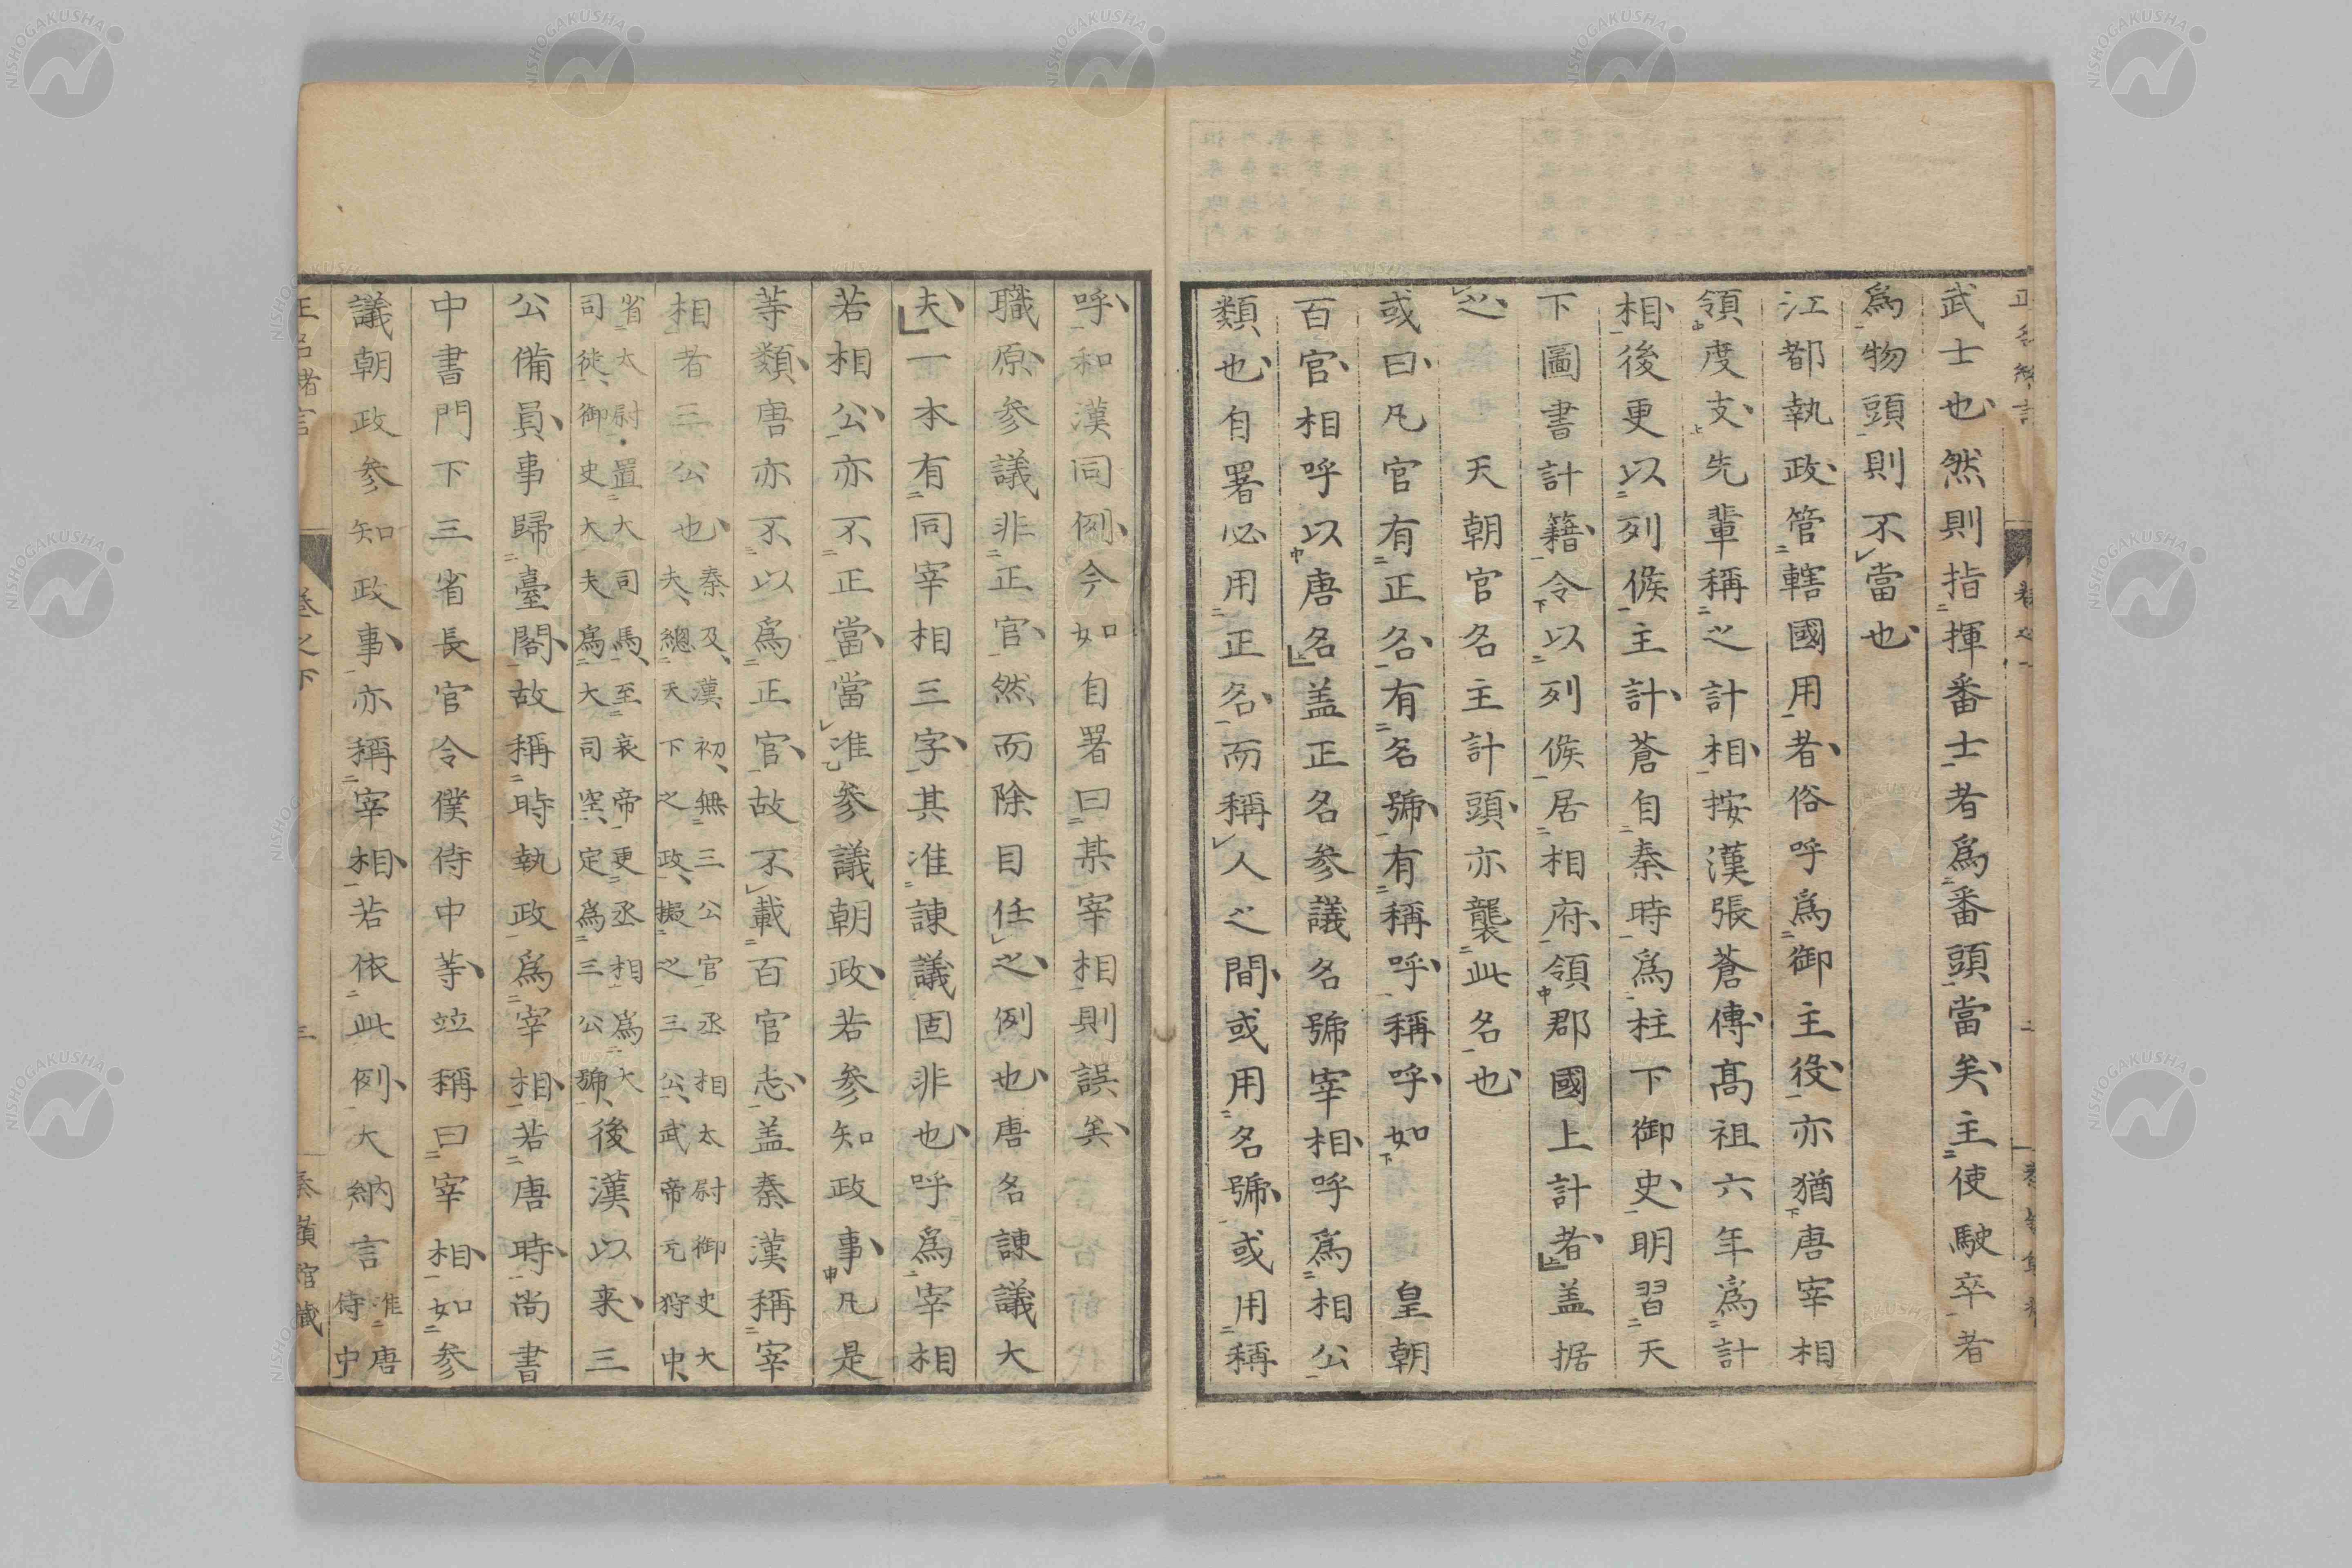 武士也、然則指揮番士者爲番頭當矣、主使駛卒者
爲物頭則不當也、
江都執政、管轄國用者、俗呼爲御主役、亦猶唐宰相
領度支、先輩稱之計相、按漢張蒼傳、髙祖六年爲計
相、後更以列侯主計、蒼自秦時爲柱下御史、明習天
下圖書計籍、令以列侯居相府、領郡國上計者、盖据
之、 天朝官名主計頭、亦襲此名也、
或曰、凡官有正名、有名號、有稱呼、稱呼、如 皇朝
百官、相呼以唐名、盖正名參議名號宰相、呼爲相公
類也、自署必用正名、而稱人之間、或用名號、或用稱
呼、和漢同例、今如自署曰某宰相則誤矣、
職原、參議非正官、然而除目任之、例也、唐名諫議大
夫、一本有同宰相三字、其准諫議固非也、呼爲宰相
若相公、亦不正當、當准參議朝政、若參知政事、凡是
等類、唐亦不以爲正官、故不載百官志、盖秦漢稱宰
相者三公也、秦及漢初、無三公官丞相太尉御史大
夫、總天下之政、擬之三公、武帝元狩中、
省太尉置大司馬、至哀帝更丞相爲大
司徒、御史大夫爲大司空、定爲三公號、後漢以来、三
公備員、事歸臺閣、故稱時執政爲宰相、若唐時、尚書
中書門下三省長官令僕侍中等、竝稱曰宰相、如參
議朝政參知政事、亦稱宰相、若依此例、大納言准唐
侍中
正名緒言
卷之下
三